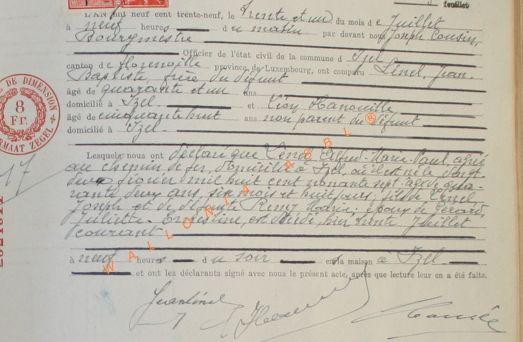 feuillet
L'AN mil neuf cent trente-neuf, le trente et un du mois de Juillet
à neuf heures du matin par devant nous Joseph Cousin,
Bourgmestre
Officier de l'état civil de la commune d' Izel
canton de Florenville, province de Luxembourg, ont comparu Linel, Jean
Baptiste, frère du défunt
âgé de quarante et un ans
domicilié à Izel et Léon Hanouille
âgé de cinquante huit ans non parent du défunt
domicilié à Izel
Lesquels nous ont déclaré que Alfred Marie Paul, agréé
au chemin de fer, domicilié à Izel, où est né le vingt
deux mil huit cent nonante sept, âgé de qua-
rante deux ans, six mois et huit jours, fils de Linel
Joseph et de Remy Marie, époux de Gérard,
Juliette Ernestine, est décédé, hier trente Juillet
courant
à neuf heures du soir en la maison à Izel
et ont les déclarants signé avec nous le présent acte, après que lecture leur en a été faite.
DE DIMENSION
8
FR.
FORMAAT ZEGEL
17
WALLONIA ASBL